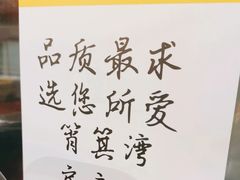 品质最求
选您所爱
筲箕湾